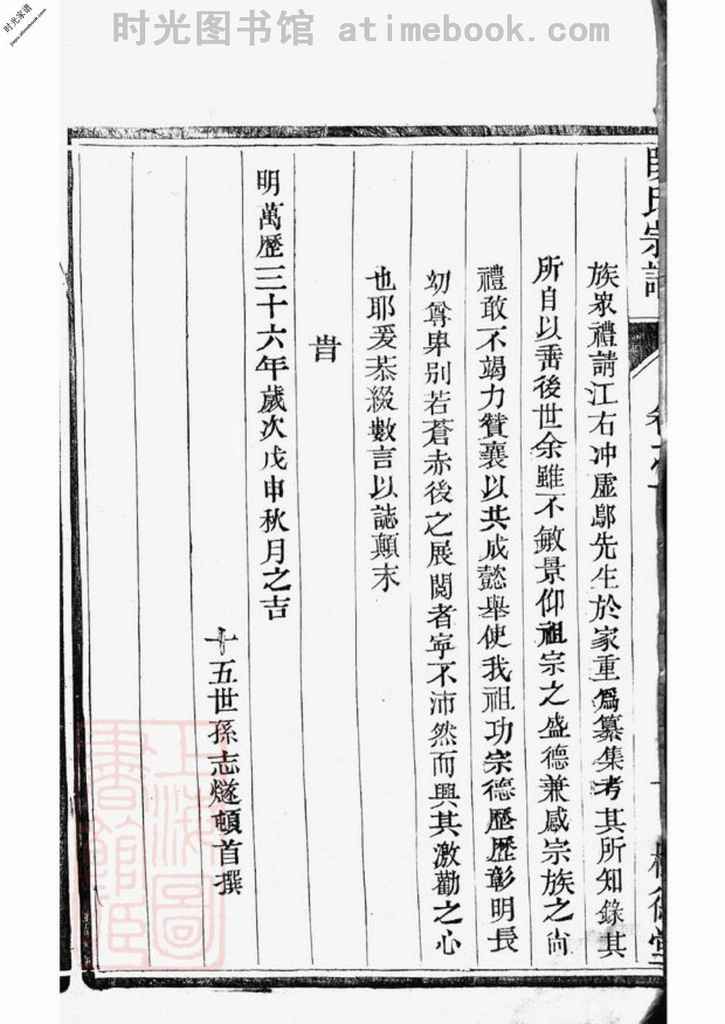 时光图书馆 atimebook.com
时光家谱
族衆禮請江右冲虛鄢先生於家重爲纂集考其所知錄其
所自以垂後世余雖不敏景仰祖宗之盛德兼感宗族之尙
禮敢不竭力贊襄以共成懿舉使我祖功宗德歷歷彰明長
幼尊卑别若蒼赤後之展閱者寧不沛然而興其激勸之心
也耶爰忝綴數言以誌顛末
旹
明萬歷三十六年歲次戊申秋月之吉
十五世孫志燧頓首撰
上海圖
書館藏